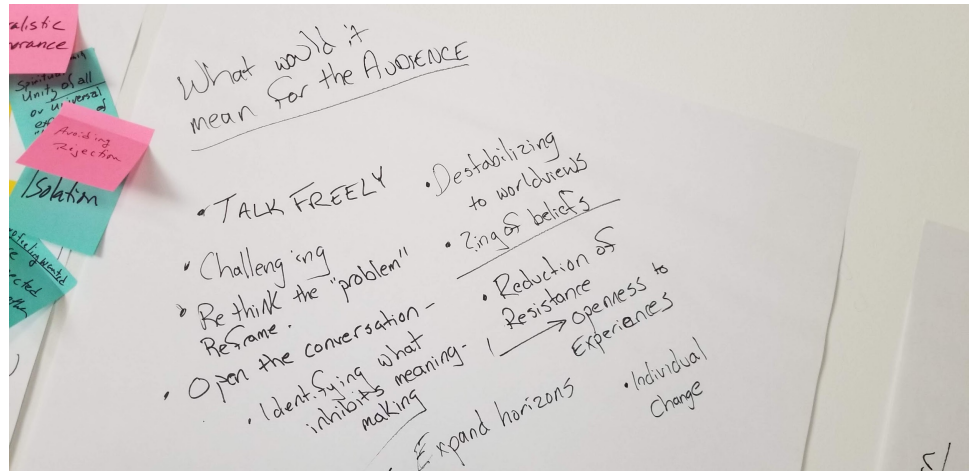 alistic
Unity of all
or universal
of
Avoiding
Rejection
Isolation
What would it
mean for the AUDIENCE
• TALK FREELY
• Challenging
• Rethink the "problem"
Reframe.
• Open the conversation -
• Identifying what
inhibits meaning-
making
Expand horizons
• Destabilizing
to worldviews
• Zing of beliefs
• Reduction of
Resistance
Openness to
Experiences
• Individual
Change